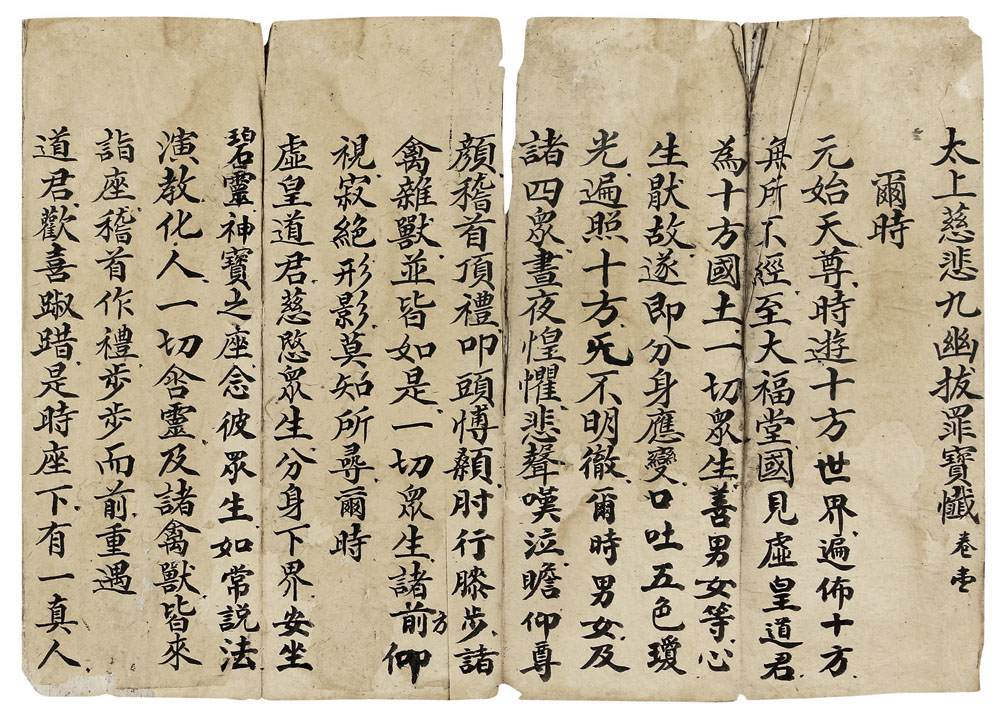 太上慈悲九幽拔罪寶懺卷壹
爾時
元始天尊時遊十方世界遍佈十方
無所不經至大福堂國見虛皇道君
為十方國土一切眾生善男女等心
生猒故遂即分身應變口吐五色瓊
光遍照十方旡不明徹爾時男女及
諸四眾晝夜惶懼悲聲嘆泣瞻仰尊
顏稽首頂禮叩頭愽顙肘行膝步諸
禽雜獸並皆如是一切眾生諸前方仰
視寂絕形影莫知所尋爾時
虛皇道君慈愍眾生分身下界安坐
碧靈神寶之座念彼眾生如常說法
演教化人一切含靈及諸禽獸皆來
詣座稽首作禮步步而前重遇
道君歡喜踧踖是時座下有一真人